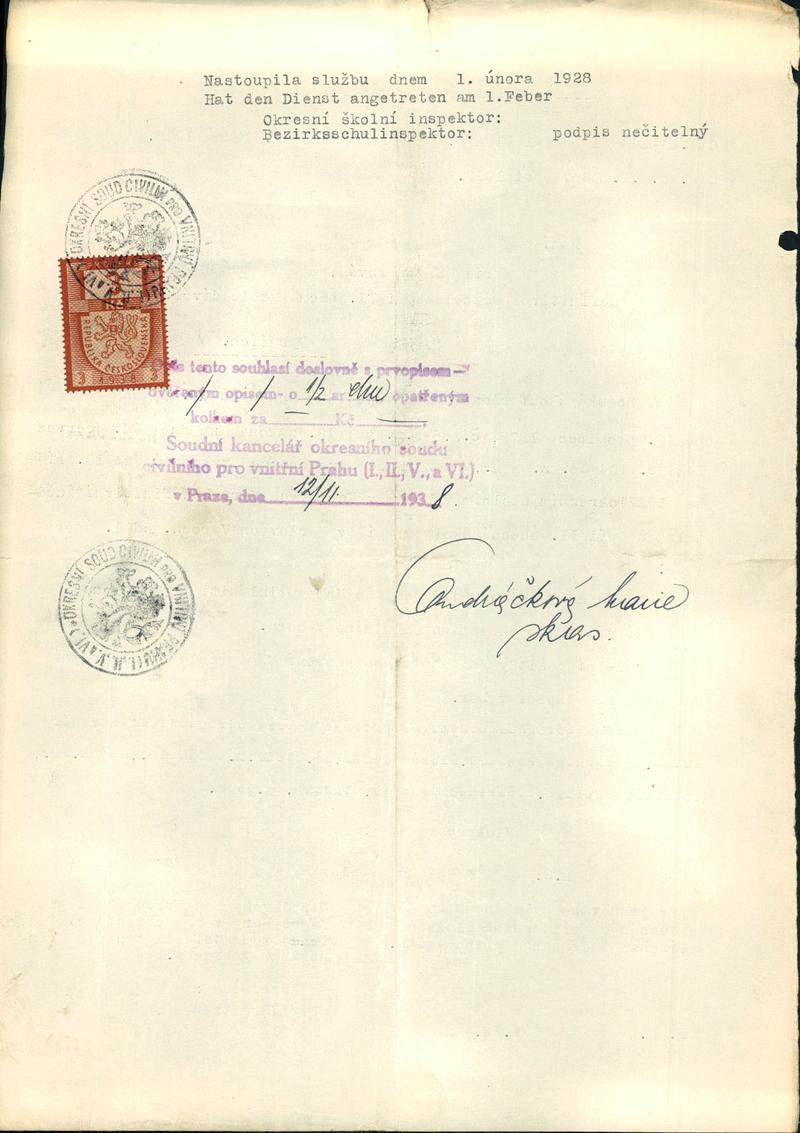 Nastoupila službu dnem 1. února 1928
Hat den Dienst angetreten am 1.Feber
Okresní školní inspektor:
Bezirksschulinspektor: podpis nečitelný
OKRESNÍ SOUD CIVILNÍ PRO VNITŘNÍ
REPUBLIKA ČESKOSLOVENSKÁ
1938
tento souhlasí doslovně s prvopisem —
ověřeným opisem o 1/2 opatřeným
kolkem za Kč
Soudní kancelář okresního soudu
civilního pro vnitřní Prahu (I., II., V., a VI.)
v Praze, dne 12/11. 1938.
OKRESNÍ SOUD CIVILNÍ PRO VNITŘNÍ PRAHU (I., II., V. a VI.)
Ondráčková Marie